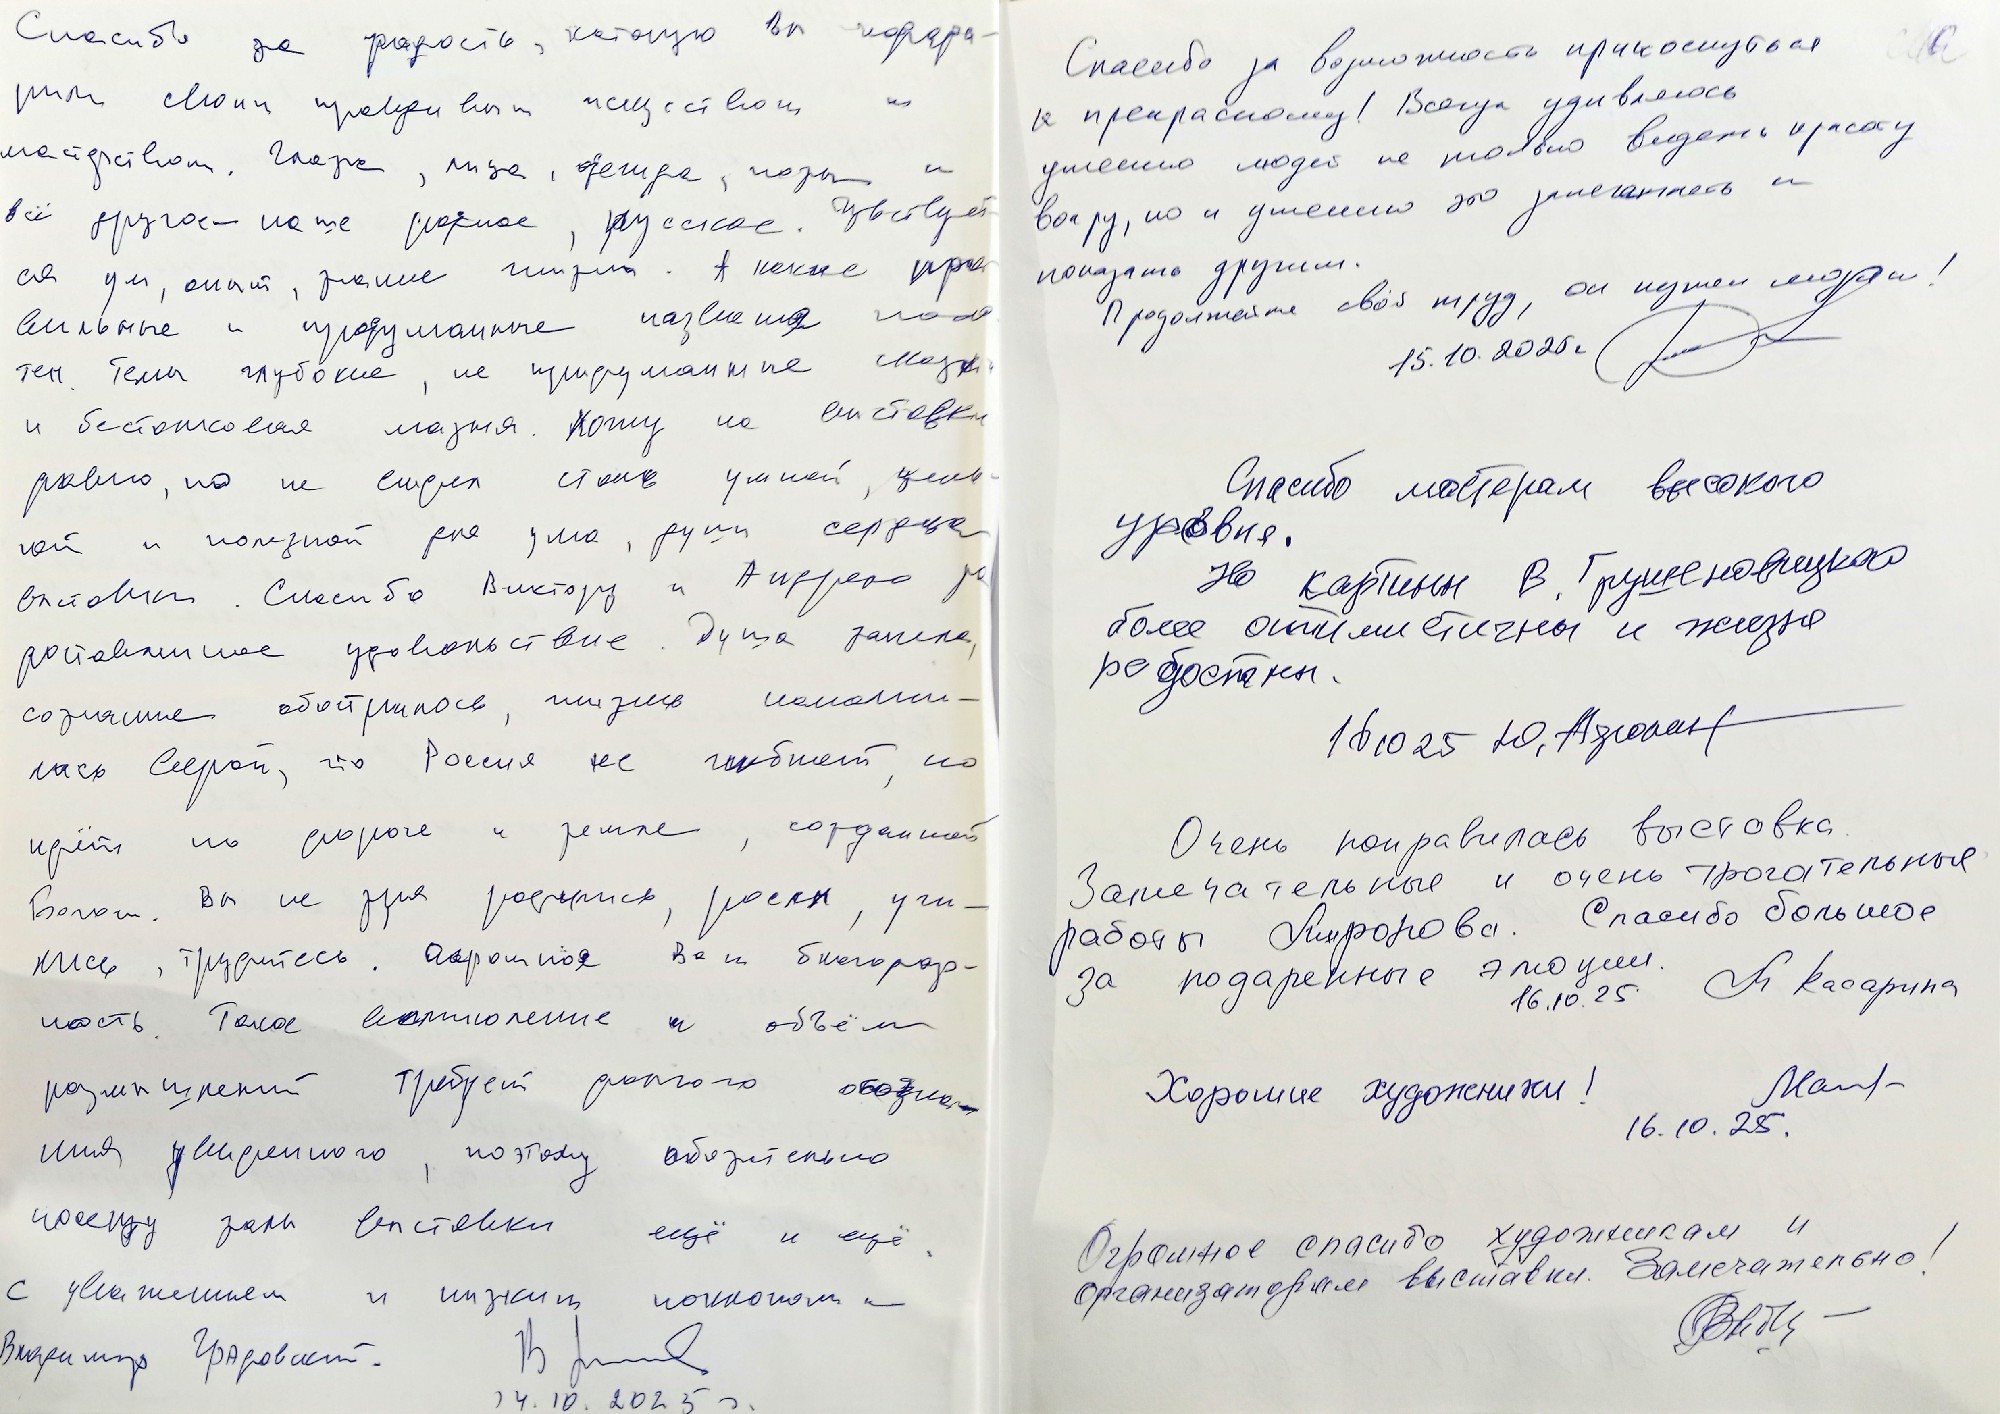 Спасибо за радость, которую Вы подара-
рили своим правдивым искусством и
мастерством. Глаза, лица, одежда, позы и
всё другое – наше родное, русское. Чувствует-
ся ум, опыт, знание жизни. А какие пра-
вильные и продуманные названия поло-
тен. Темы глубокие, не придуманные
и бестолковая мазня. Хожу на выставки
давно, но не видел столь умной, цель-
ной и полезной для ума, души сердца
выставки. Спасибо Виктору и Андрею за
доставленное удовольствие. Душа запела,
сознание обострилось, жизнь наполни-
лась верой, что Россия не погибнет, но
идёт по дороге и земле, созданной
Богом. Вы не зря родились, росли, учи-
лись, трудитесь. Огромная Вам благодар-
ность. Такое воплощение и объём
размышлений требует долгого осозна-
ния увиденного, поэтому обязательно
посещу залы выставки ещё и ещё.
С уважением и низким поклоном
Владимир Градовский.
14.10.2025 г.
Спасибо за возможность прикоснуться
к прекрасному! Всегда удивляюсь
умению людей не только видеть красоту
вокруг, но и умению это запечатлеть и
показать другим.
Продолжайте свой труд, он нужен людям!
15.10.2025г.
Спасибо мастерам высокого
уровня.
Но картины В. Грушеновицкого
более оптимистичны и жизне
радостны.
16 10 25 Ю.
Очень понравилась выставка.
Замечательные и очень трогательные
работы Миронова. Спасибо большое
за подаренные эмоции.
16.10.25 Касарина
Хорошие художники!
16.10.25.
Огромное спасибо художникам и
организаторам выставки. Замечательно!